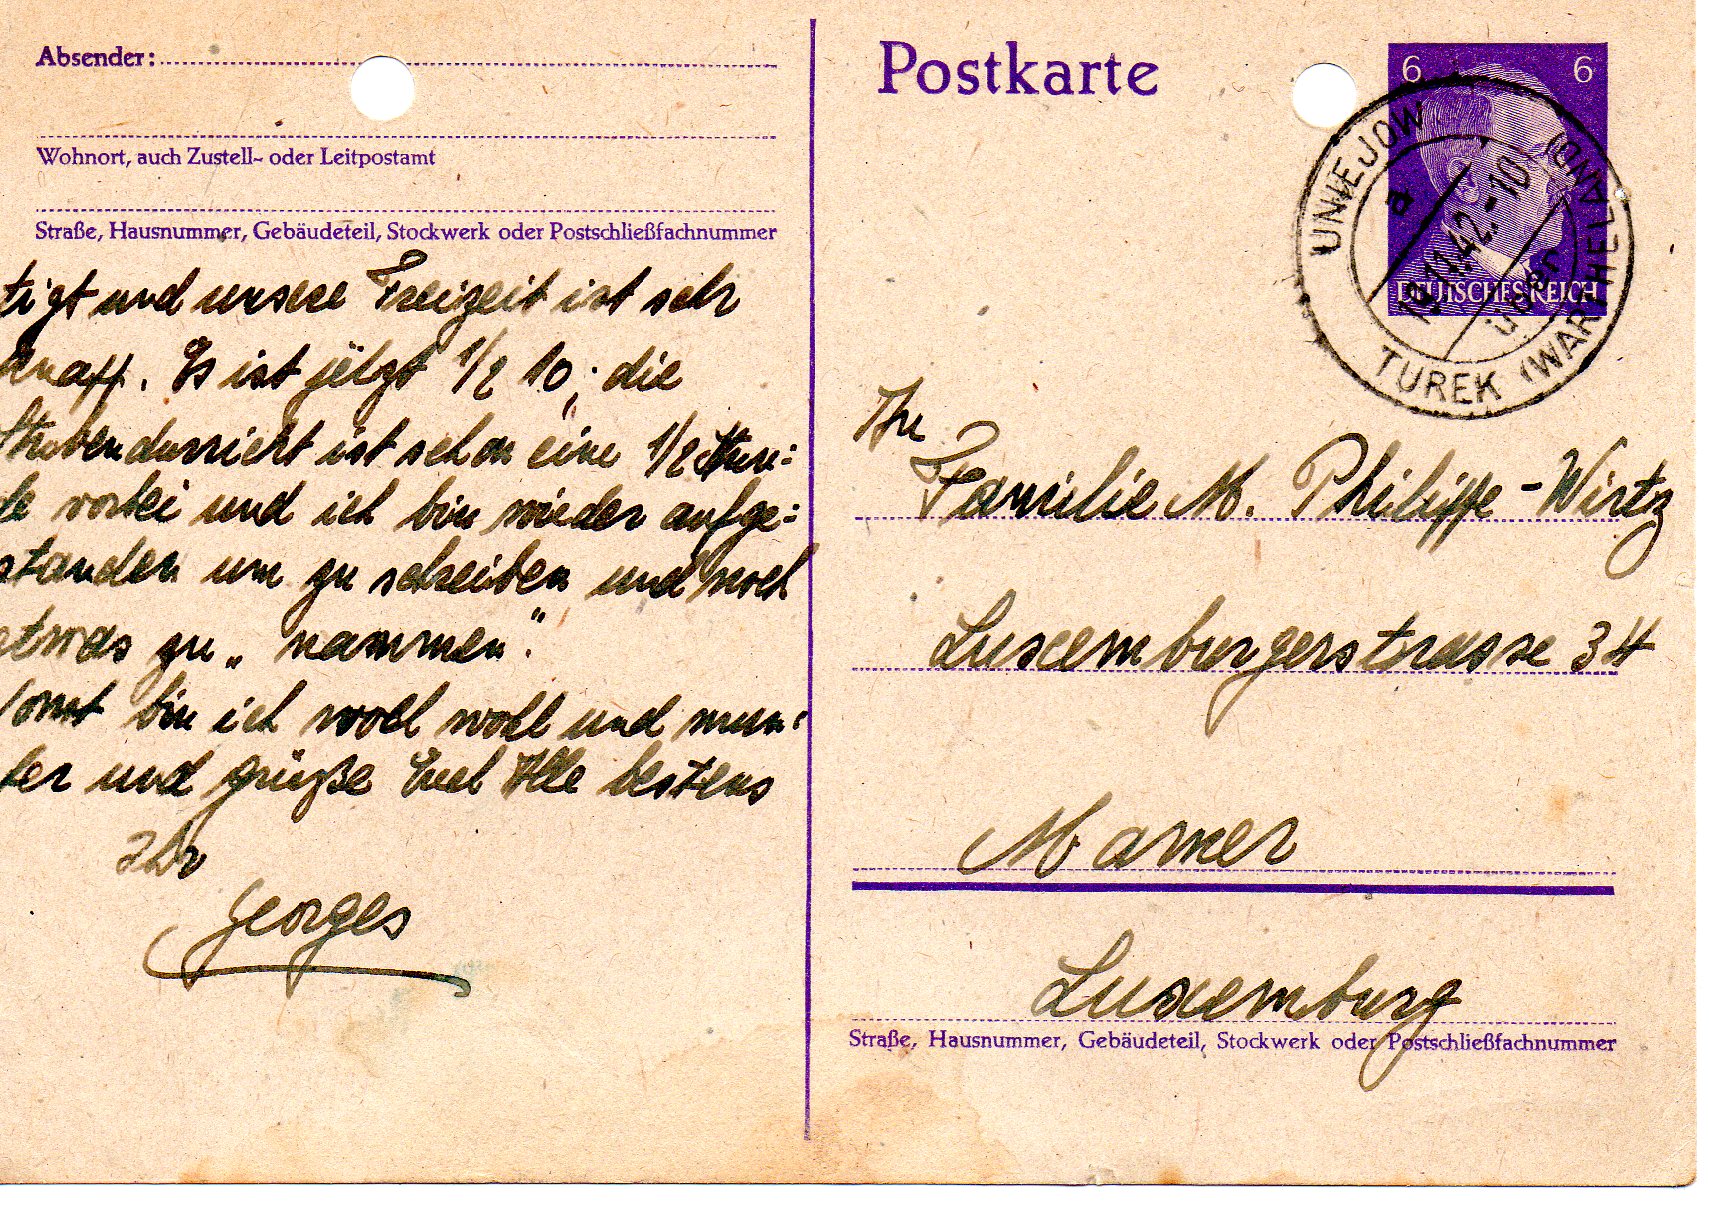 Absender:
Wohnort, auch Zustell- oder Leitpostamt
Straße, Hausnummer, Gebäudeteil, Stockwerk oder Postschließfachnummer
tigt und unsere Freizeit ist sehr
knapp. Es ist jetzt 1/2 10; die
Stubendurricht ist schon eine 1/2 Stun-
de vorbei und ich bin wieder aufge-
standen um zu schreiben und noch
etwas zu „
Sonst bin ich wohl und mun-
ter und grüße Euch Alle bestens
Ihr
Georges
Postkarte
6 6
DEUTSCHES REICH
UNIEJOW
über
TUREK (WARTHELAND)
a
11.42.-10
Familie M. Philippe-Wirtz
Luxemburgerstrasse 34
Mamer
Luxemburg
Straße, Hausnummer, Gebäudeteil, Stockwerk oder Postschließfachnummer